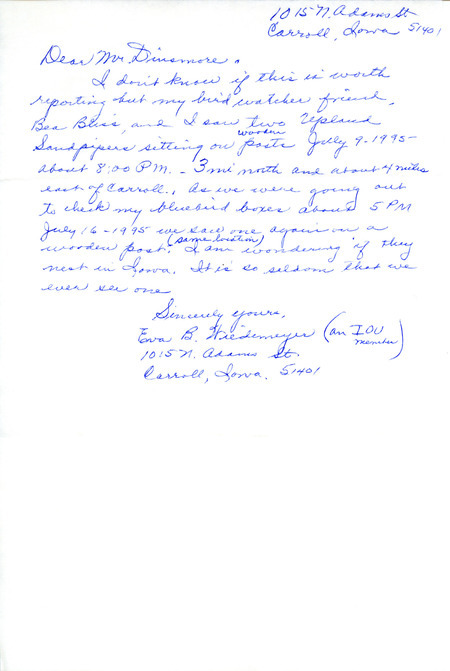 1015 N. Adams St
Carroll, Iowa 51401
Dear Mr. Dinsmore,
I don't know if this is worth
reporting but my bird watcher friend,
Bea Bliss, and I saw two Upland
Sandpipers sitting on wooden posts July 9-1995-
about 8:00 P.M. - 3 mi north and about 4 miles
east of Carroll. As we were going out
to check my bluebird boxes about 5 PM
July 16-1995 we saw one again on a
wooden post. (same location) I am wondering if they
nest in Iowa. It is so seldom that we
ever see one
Sincerely yours,
Eva B. Wiedemeyer (an IOU member)
1015 N. Adams St.
Carroll, Iowa. 51401